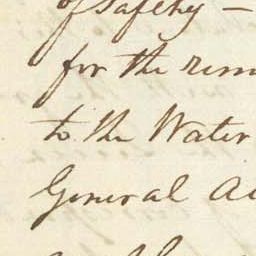 of safety –
for the rem
to the Water
General A